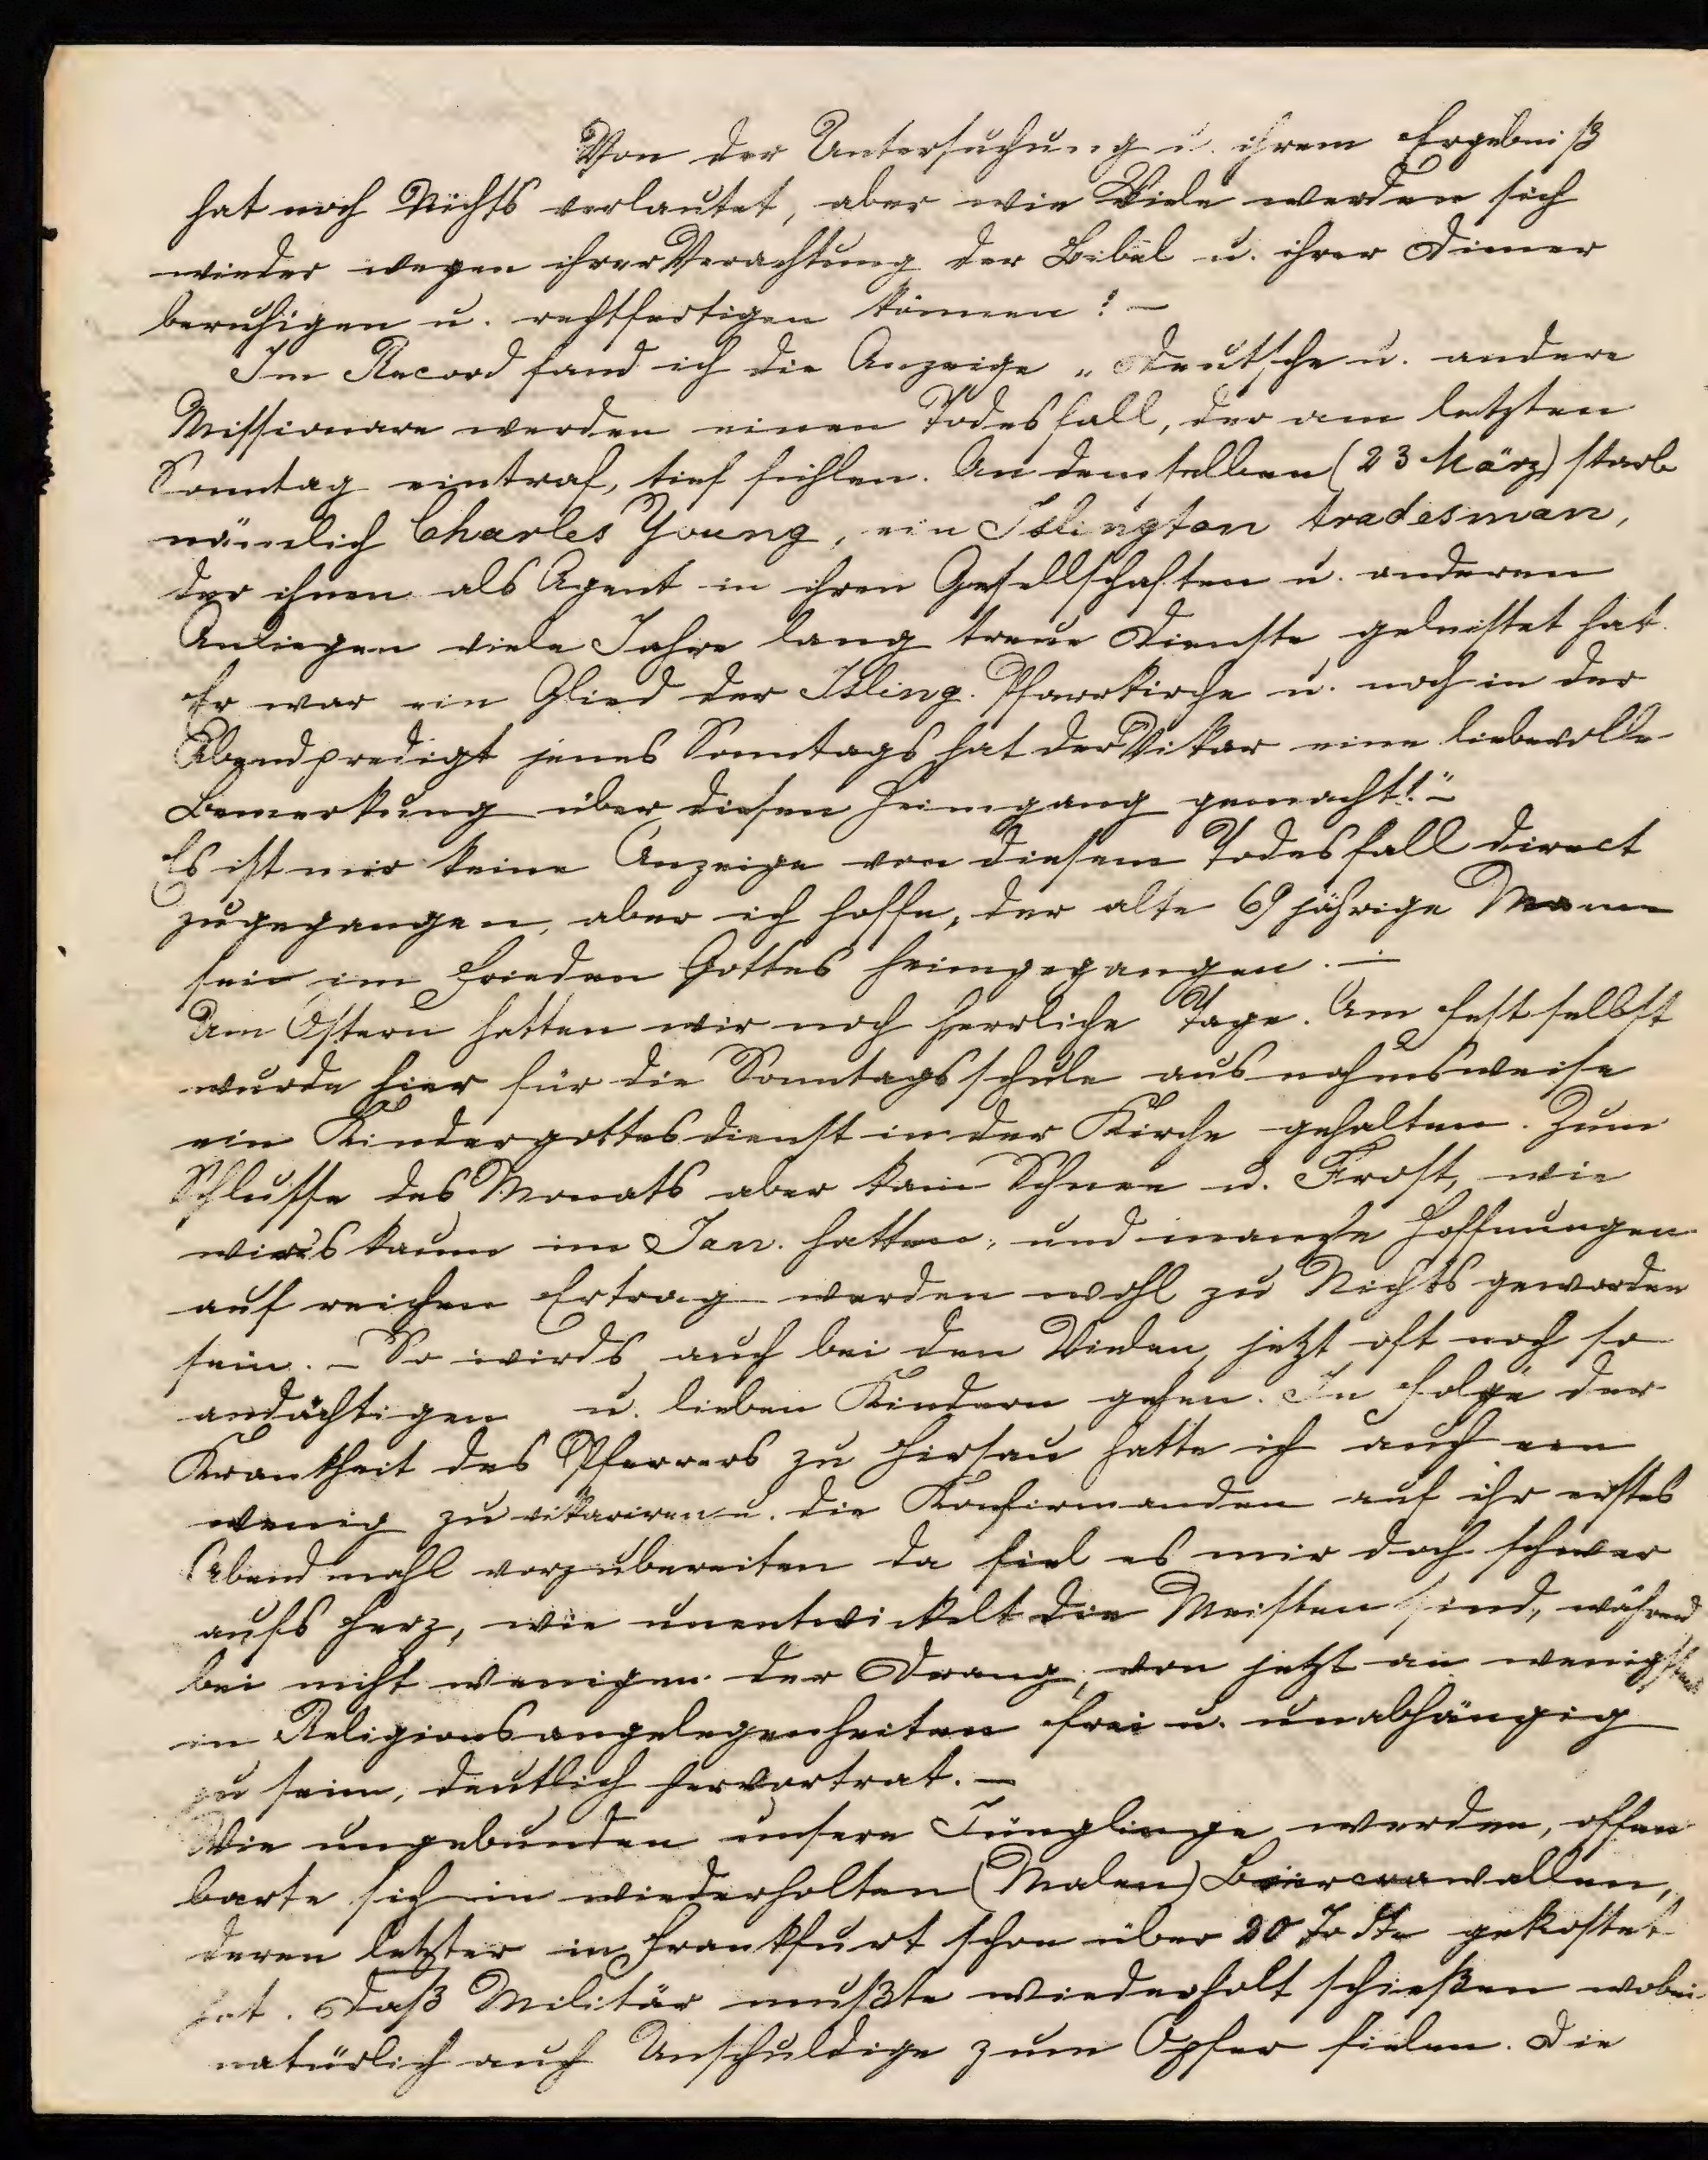 Von der Untersuchung u. ihrem Ergebniß
hat noch Nichts verlautet, aber wie Viele werden sich
wieder wegen ihrer Verachtung der Bibel u. ihrer Diener
beruhigen u. rechtfertigen können! –
Im Record fand ich die Anzeige „Deutsche u. andere
Missionare werden einen Todesfall, der am letzten
Sonntag eintraf, tief fühlen. An demselben (23 März) starb
nämlich Charles Young, ein Islington tradesman,
der ihnen als Agent in ihren Gesellschaften u. anderen
Anliegen viele Jahre lang treue Dienste geleistet hat.
Er war ein Glied der Isling. Pfarrkirche u. noch in der
Abendpredigt jenes Sonntags hat der Vikar eine liebevolle
Bemerkung über diesen Heimgang gemacht!" –
Es ist mir keine Anzeige von diesem Todesfall direct
zugegangen, aber ich hoffe, der alte 69 jährige Mann
sei im Frieden Gottes heimgegangen. –
Um Ostern hatten wir noch herrliche Tage. Am Fest selbst
wurde hier für die Sonntagsschule ausnahmsweise
ein Kindergottesdienst in der Kirche gehalten. Zum
Schlusse des Monats aber kam Schnee u. Frost, wie
wir's kaum im Jan. hatten, und manche Hoffnungen
auf reichen Ertrag werden wohl zu Nichts geworden
sein. – So wirds auch bei den Vielen, jetzt oft noch so
andächtigen u. lieben Kindern gehen. In Folge der
Krankheit des Pfarrers zu Hirsau hatte ich auch ein
wenig zu vikariren u. die Konfirmanden auf ihr erstes
Abendmahl vorzubereiten da fiel es mir doch schwer
aufs Herz, wie unentwickelt die Meisten sind, während
bei nicht wenigen der Drang, von jetzt an wenigstens
in Religionsangelegenheiten frei u. unabhängig
zu sein, deutlich hervortrat. –
Wie ungebunden unsere Jünglinge werden, offen
barte sich in wiederholten (Malen) Biercrawallen,
deren letzter in Frankfurt schon über 20 Todte gekostet
hat. Daß Militär mußte wiederholt schießen wobei
natürlich auch Unschuldige zum Opfer fielen. Die